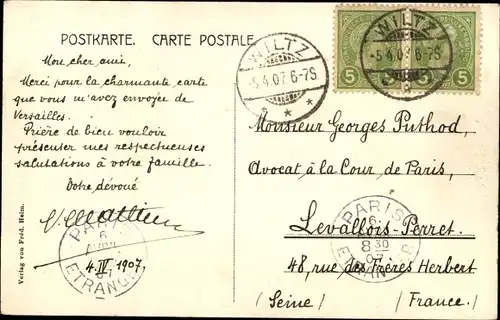 POSTKARTE. CARTE POSTALE.
Mon cher ami,
Merci pour la charmante carte
que vous m'avez envoyée de
Versailles.
Prière de bien vouloir
présenter mes respectueuses
salutations à votre famille.
Votre dévoué
4. IV. 1907.
Verlag von Fréd. Heim.
WILTZ
-5.4.07 6-7S
WILTZ
-5.4.07 6-7S
5 5
Monsieur Georges Puthod,
Avocat à la Cour de Paris,
Levallois-Perret.
48, rue des Frères Herbert
(Seine) (France.)
PARIS
6
AVRIL
ETRANGER
PARIS
6
8 30
07
ETRANGER